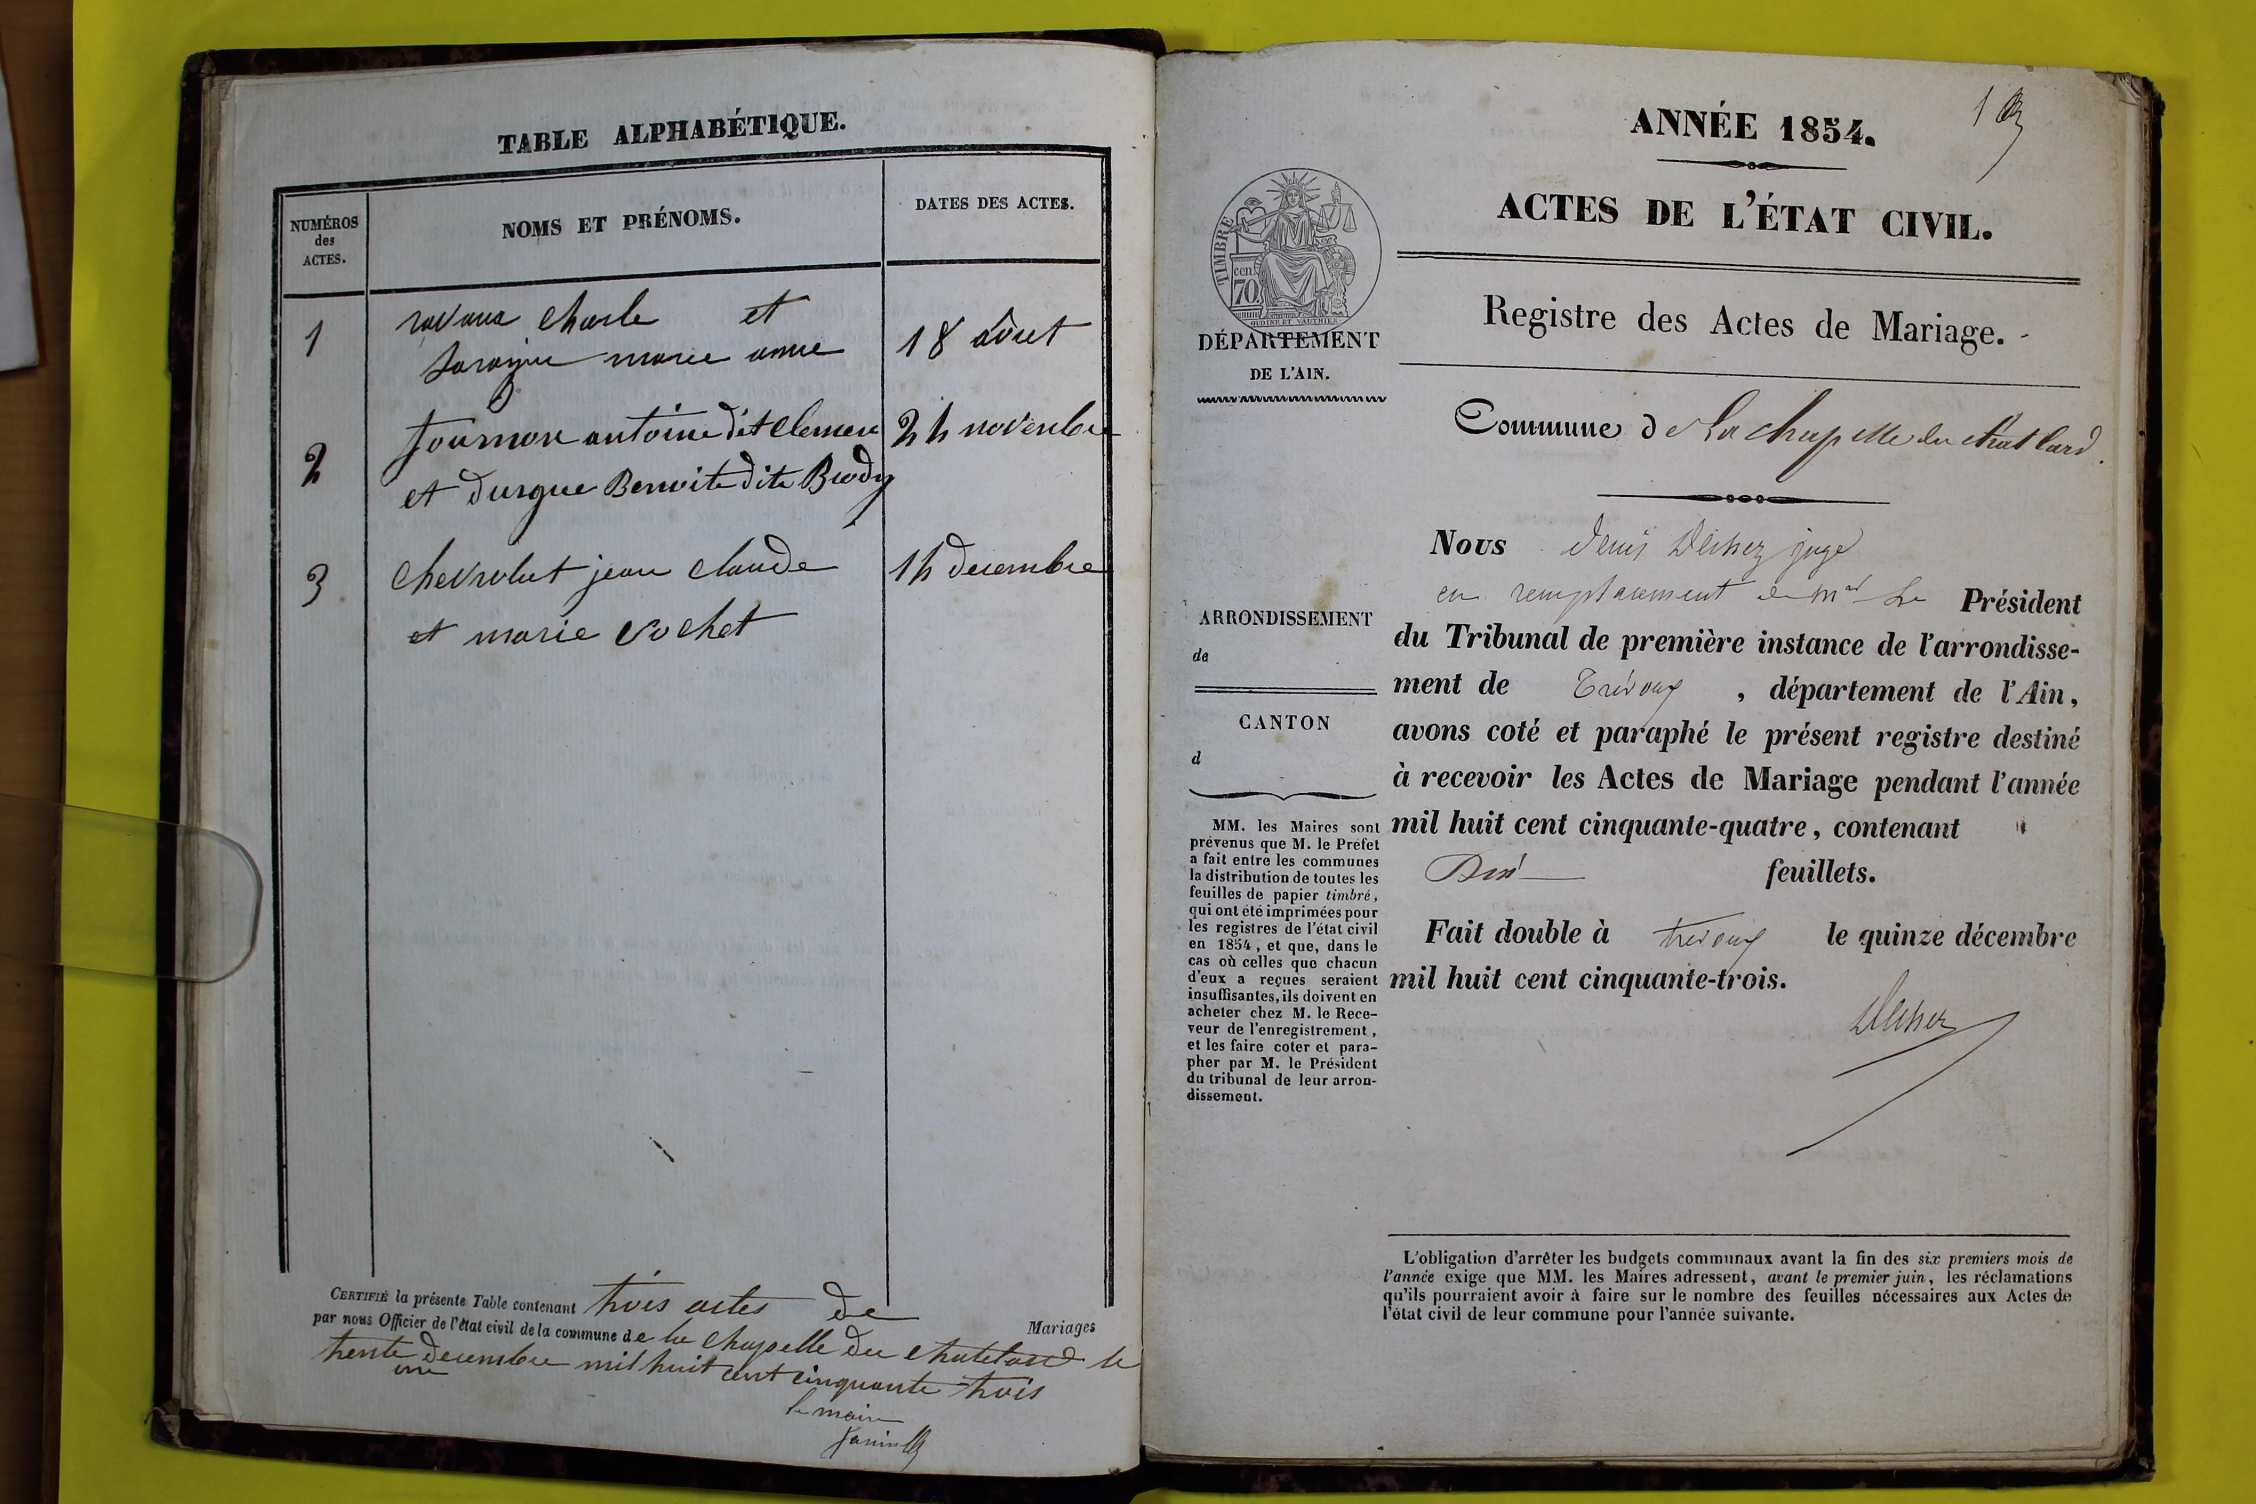 TABLE ALPHABÉTIQUE.
NUMÉROS
des
ACTES.
NOMS ET PRÉNOMS.
DATES DES ACTES.
1
ravaux charle et
marie anne
18 aôut
2
tournon antoine dit Clement
24 novembre
et durgue Benoite dite Brody
3
Chevrolut jean claude
14 decembre
et marie Cochet
CERTIFIÉ la présente Table contenant trois actes de
Mariages
par nous Officier de l'état civil de la commune de la chapelle du chatelard le
trente decembre mil huit cent cinquante trois
une
le maire
ANNÉE 1854.
1
ACTES DE L'ÉTAT CIVIL.
Registre des Actes de Mariage.
TIMBRE
cen.
70.
OUDINE ET VAUTHIER
DÉPARTEMENT
DE L'AIN.
Commune de La chapelle du chatelard.
Nous denis juge
en remplacement de Mr Le Président
du Tribunal de première instance de l'arrondisse-
ment de Trévoux, département de l'Ain,
avons coté et paraphé le présent registre destiné
à recevoir les Actes de Mariage pendant l'année
mil huit cent cinquante-quatre, contenant
feuillets.
Fait double à trevoux le quinze décembre
mil huit cent cinquante-trois.
ARRONDISSEMENT
de
CANTON
d
MM. les Maires sont
prévenus que M. le Préfet
a fait entre les communes
la distribution de toutes les
feuilles de papier timbré,
qui ont été imprimées pour
les registres de l'état civil
en 1854, et que, dans le
cas où celles que chacun
d'eux a reçues seraient
insuffisantes, ils doivent en
acheter chez M. le Rece-
veur de l'enregistrement,
et les faire coter et para-
pher par M. le Président
du tribunal de leur arron-
dissement.
L'obligation d'arrêter les budgets communaux avant la fin des six premiers mois de
l'année exige que MM. les Maires adressent, avant le premier juin, les réclamations
qu'ils pourraient avoir à faire sur le nombre des feuilles nécessaires aux Actes de
l'état civil de leur commune pour l'année suivante.